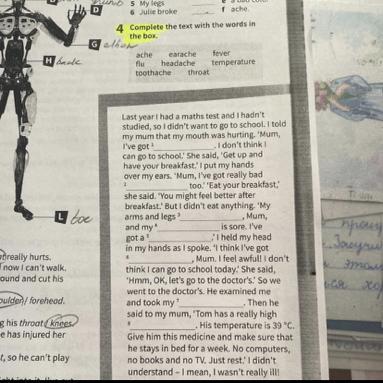 D
5 My legs
6 Julie broke
f ache.
4 Complete the text with the words in
the box.
G elbow
H back
ache earache fever
flu headache temperature
toothache throat
Last year I had a maths test and I hadn't
studied, so I didn't want to go to school. I told
my mum that my mouth was hurting. 'Mum,
I've got ¹ . I don't think I
can go to school.' She said, 'Get up and
have your breakfast.' I put my hands
over my ears. 'Mum, I've got really bad
² too.' 'Eat your breakfast,'
she said. 'You might feel better after
breakfast.' But I didn't eat anything. 'My
arms and legs ³ , Mum,
and my ⁴ is sore. I've
got a ⁵ .' I held my head
in my hands as I spoke. 'I think I've got
⁶ , Mum. I feel awful! I don't
think I can go to school today.' She said,
'Hmm, OK, let's go to the doctor's.' So we
went to the doctor's. He examined me
and took my ⁷ . Then he
said to my mum, 'Tom has a really high
⁸ . His temperature is 39 °C.
Give him this medicine and make sure that
he stays in bed for a week. No computers,
no books and no TV. Just rest.' I didn't
understand – I mean, I wasn't really ill!
L toe
really hurts.
now I can't walk.
ound and cut his
oulder / forehead.
g his throat / knees
e has injured her
t, so he can't play